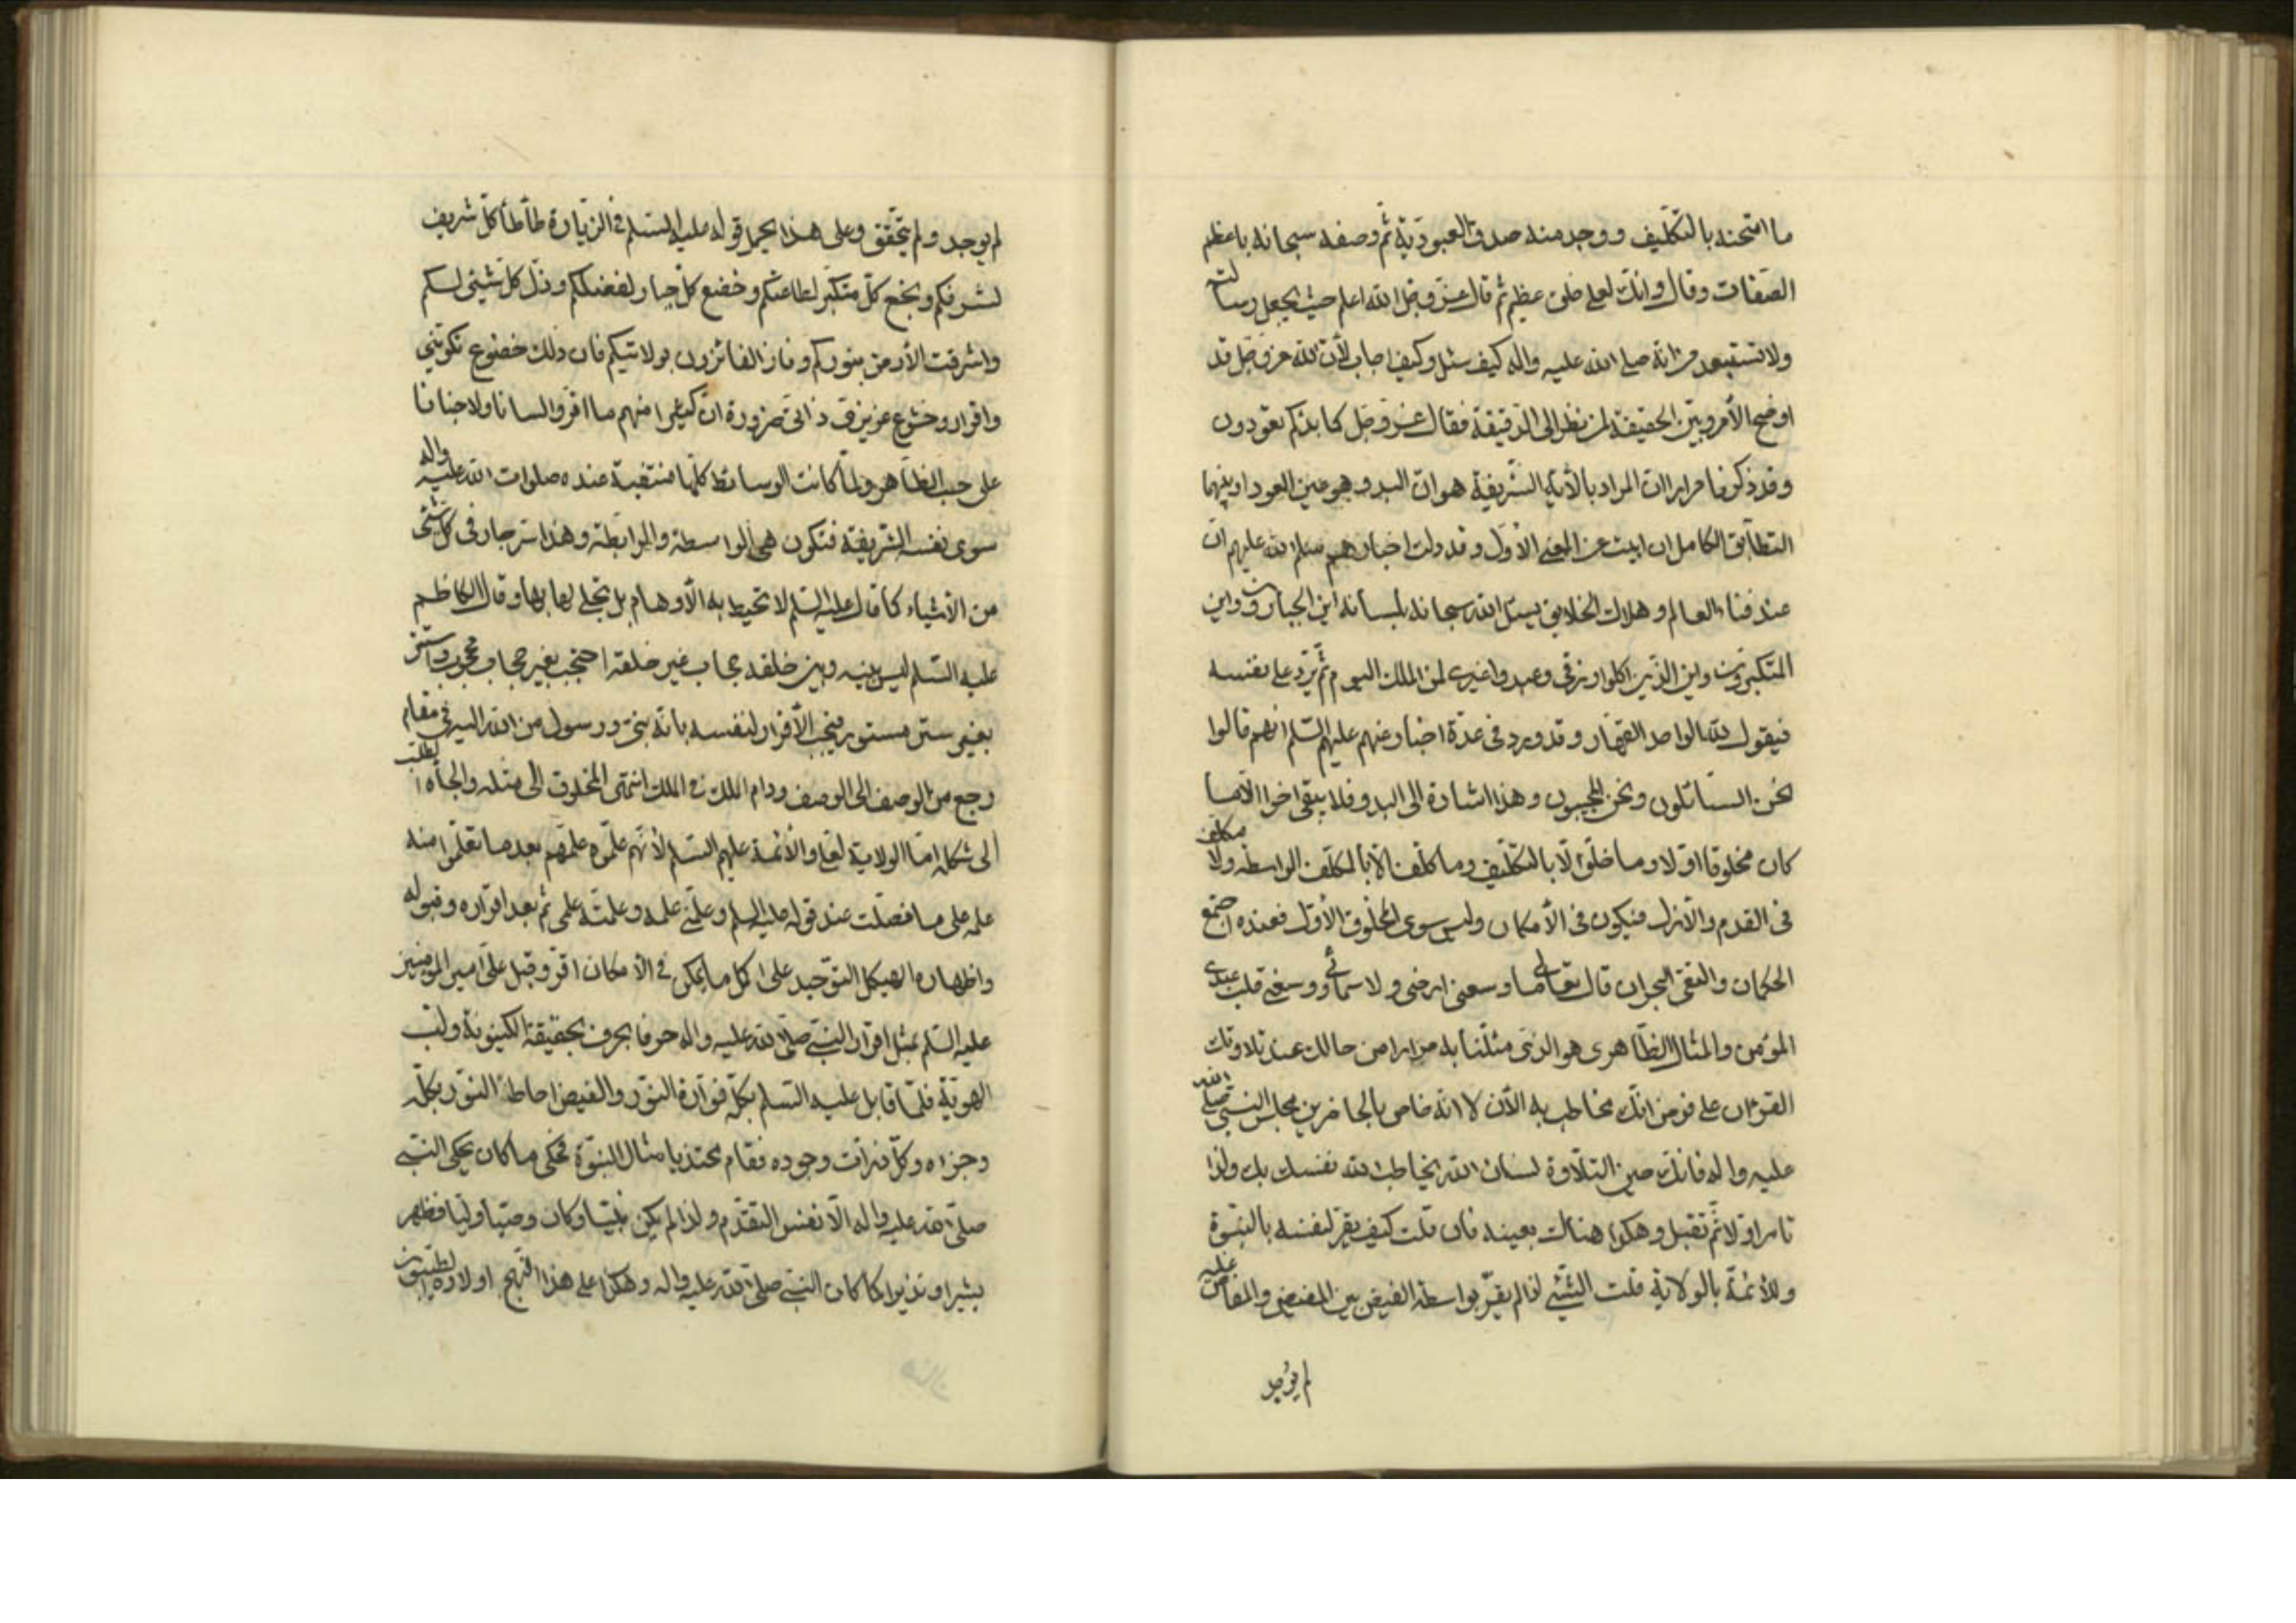 ما امتحنه بالتكليف ووجد منه صدق العبودية ثم وصفه سبحانه باعظم
الصفات وقال وانك لعلى خلق عظيم ثم قال عز وجل الله اعلم حيث يجعل رسالته
ولا تستبعد من انه صلى الله عليه واله كيف سئل وكيف اجاب لأن الله عز وجل قد
اوضح الأمر وبين الحقيقة لمن نظر الى الدقيقة فقال عز وجل كما بدئكم تعودون
وقد ذكرنا مرارا ان المراد بالأية الشريفة هو ان البدو هو عين العود او بينهما
التطابق الكامل ان ابيت عن المعنى الأول وقد دلت اخبارهم سلام الله عليهم ان
عند فناء العالم وهلاك الخلايق يسئل الله سبحانه بلسانه اين الجبارون واين
المتكبرون واين الذين اكلوا رزقى وعبدوا غيرى لمن الملك اليوم ثم يرد على نفسه
فيقول لله الواحد القهار وقد ورد فى عدة اخبار عنهم عليهم السلام انهم قالوا
نحن السائلون ونحن المجيبون وهذا اشارة الى البدو فلا يبقى اخرا الا ما
كان مخلوقا اولا وما خلق الا بالتكليف وما كلف الا بالمكلف الواسطة ولا مكلف
فى القدم والأزل فيكون فى الأمكان وليس سوى المخلوق الأول فعنده اجتمع
الحكمان والتقى البحران قال تعالى ما وسعنى ارضى ولا سمائى ووسعنى قلب عبدى
المؤمن والمثال الظاهرى هو الذى مثلنا به مرارا من حالك عند تلاوتك
القرءان على فرض انك مخاطب به الأن لا انه خاص بالحاضرين مجلس النبى صلى الله
عليه واله فانك حين التلاوة لسان الله يخاطب الله نفسك بك ولذا
تامر اولا ثم تقبل وهكذا هنالك بعينه فان قلت كيف يقر لنفسه بالنبوة
وللأئمة بالولاية قلت الشئ لو لم يقر بواسطة الفيض بين المفيض والمفاض عليه
لم يوجد
لم يوجد ولم يتحقق وعلى هذا يحمل قوله عليه السلم فى الزيارة طأطأ كل شريف
لشرفكم وبخع كل متكبر لطاعتكم وخضع كل جبار لفضلكم وذل كل شيئ لكم
واشرقت الأرض بنوركم وفاز الفائزون بولايتكم فان ذلك خضوع تكوينى
واقرار وخشوع غريزى ذاتى ضرورة ان كثيرا منهم ما اقروا لسانا ولا جنانا
على حسب الظاهر ولما كانت الوسائط كلها منتفية عنده صلوات الله عليه واله
سوى نفسه الشريفة فتكون هى الواسطة والرابطة وهذا سر جار فى كل شئ
من الأشياء كما قال عليه السلم لا تحيط به الأوهام بل تجلى لها بها وقال الكاظم
عليه السلم ليس بينه وبين خلقه حجاب غير خلقه احتجب بغير حجاب محجوب واستتر
بغير ستر مستور فيجب الأقرار لنفسه بانه نبى ورسول من الله اليه فى مقام
رجع من الوصف الى الوصف ودام الملك فى الملك انتهى المخلوق الى مثله والجأه الطلب
الى شكله اما الولاية لعلى والأئمة عليهم السلم لأنهم علموه علمهم بعد ما تعلموا منه
علمه على ما فصلت عند قوله عليه السلم وعلمنى علمه وعلمته علمى ثم بعد اقراره وقبوله
واظهاره لهيكل التوحيد على اكمل ما يمكن فى الأمكان اقر وقبل على امير المؤمنين
عليه السلم بمثل اقرار النبى صلى الله عليه واله حرفا بحرف بحقيقة الكينونة ولب
الهوية فلما قابل عليه السلم بكله فوارة النور والفيض احاط النور بكله
وجزئه وكل ذرات وجوده فقام محتذيا مثال النبوة فحكى ما كان يحكى النبى
صلى الله عليه واله الا نفس التقدم ولذا لم يكن نبيا وكان وصيا وليا فظهر
بشيرا ونذيرا كما كان النبى صلى الله عليه واله وهكذا على هذا النهج اولاده الطيبون